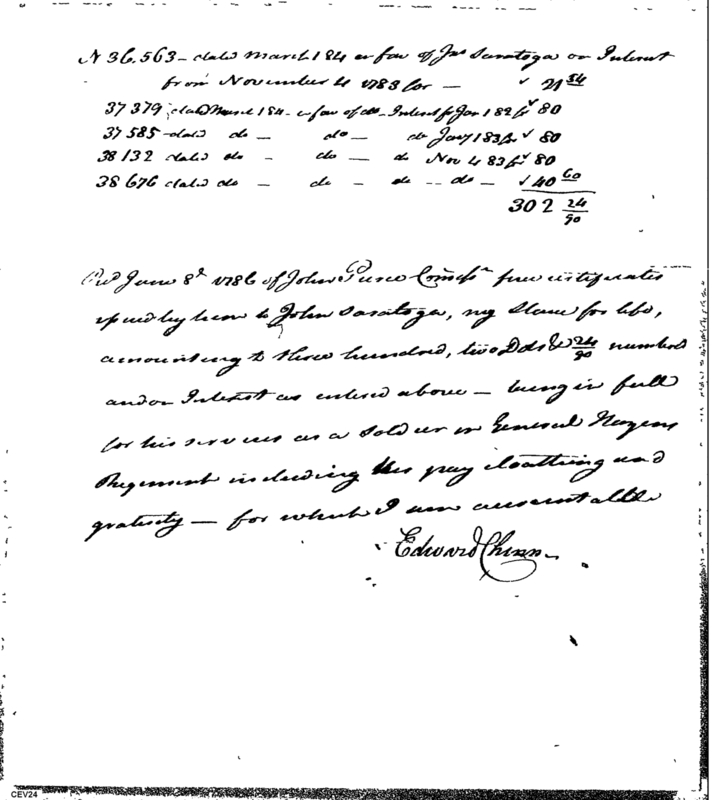 N 36.563 - dated March 1 84 in fav of Jno Saratoga on Interest
from November 4 1783 for - 21 54
37 379 dated March 1 84 - in fav of do - Interest fr Jan 1 82 for 80
37 585 - dated do - do - do Jany 1 83 for 80
38 132 dated do - do - do Nov 4 83 for 80
38 676 dated do - do - do - do - 40 60
302 24/90
June 8th 1786 of John Pierce Commssr five certificates
issued by him to John Saratoga, my Slave for life,
amounting to three hundred, two Dolrs & 24/90 numberd
and on Interest as entered above - being in full
for his services as a Soldier in General Hazens
Regiment including his pay cloathing and
gratuity - for which I am accountable
Edward Chinn
CEV24